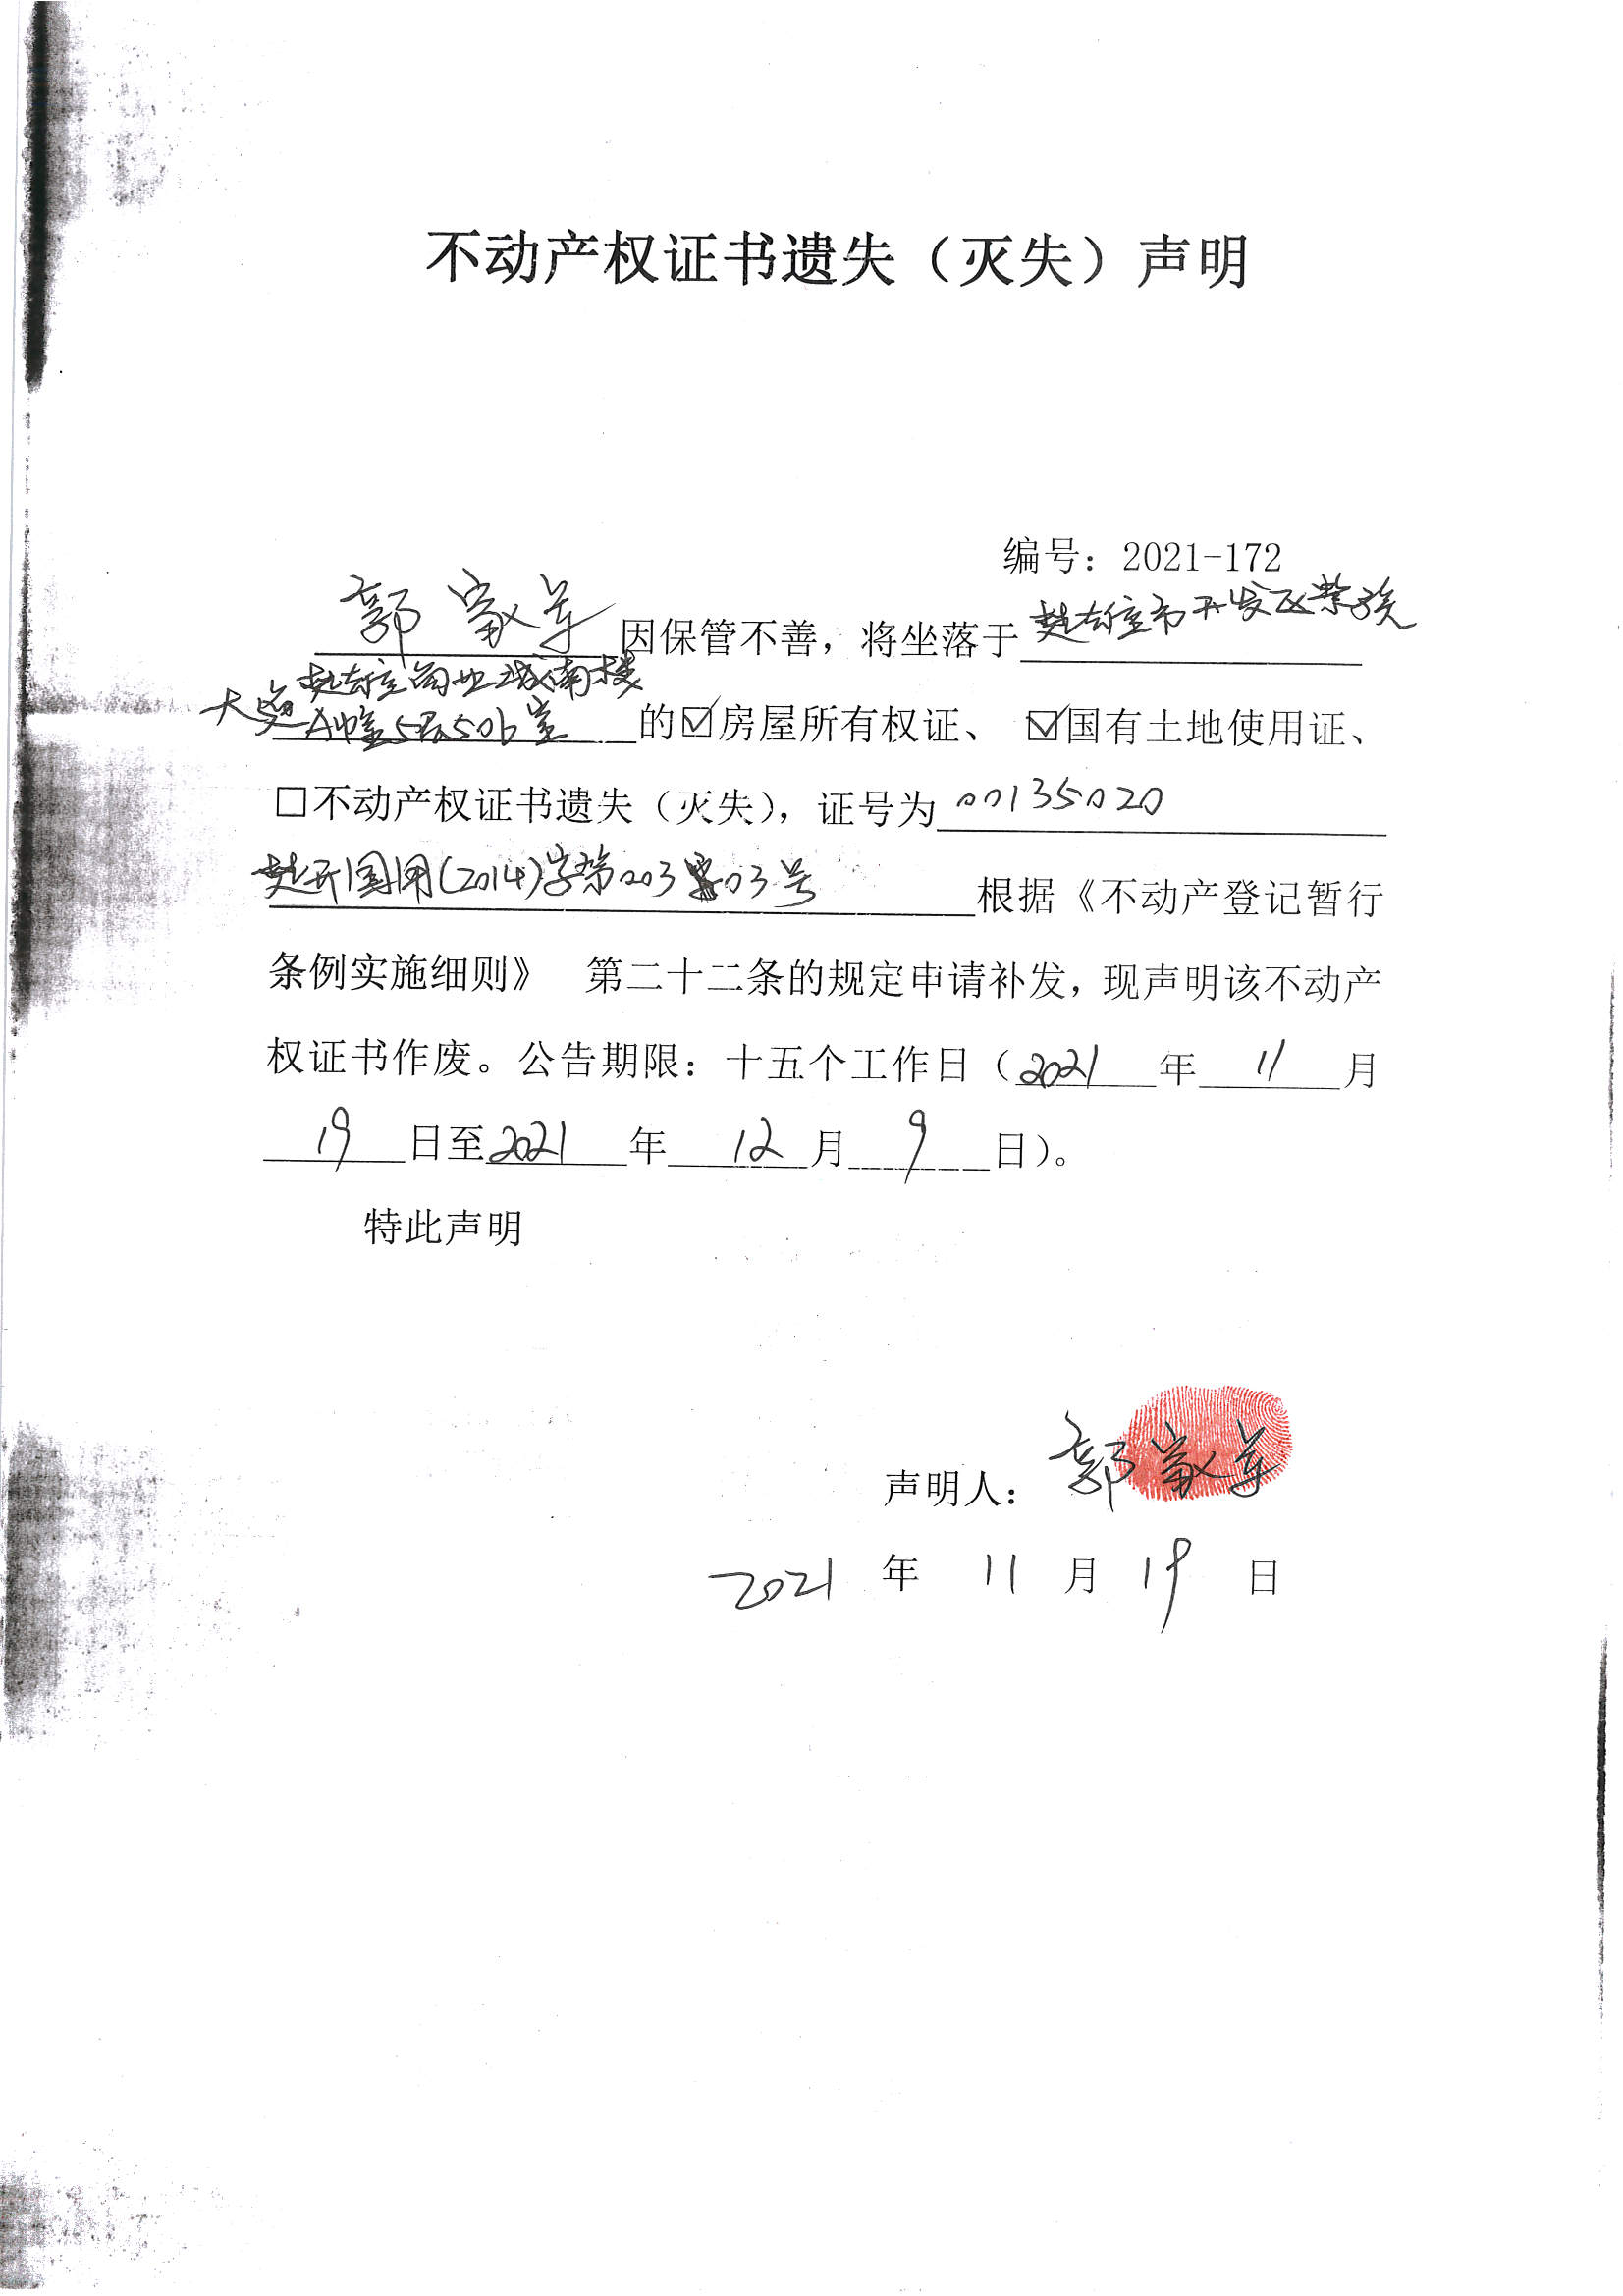 不动产权证书遗失（灭失）声明
编号：2021-172
郭家华因保管不善，将坐落于楚雄市开发区彝族
大道楚雄商业城南楼
A幢5层506室的☑房屋所有权证、☑国有土地使用证、
□不动产权证书遗失（灭失），证号为00135020
楚开国用(2014)字第00303号根据《不动产登记暂行
条例实施细则》 第二十二条的规定申请补发，现声明该不动产
权证书作废。公告期限：十五个工作日（2021年11月
19日至2021年12月9日）。
特此声明
声明人：郭家华
2021年11月19日